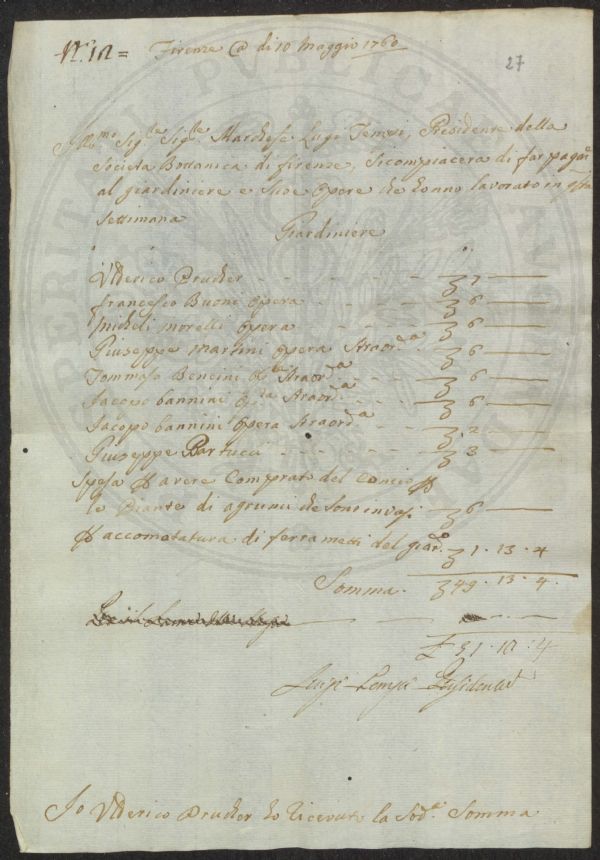 Nº. 12 =
Firenze @ di 10 Maggio 1760
27
Ill.mo Sig.re Sig.re Marchese Luigi Tempi, Presidente della
Societa Bottanica di firenze, Si compiacera di far pagare
al giardiniere e Sue Opere che hanno lavorato in q.sta
Settimana
Giardiniere
Ulderico Prucher - - - - - - ʒ 7 —
francesco Buoni Opera - - - - ʒ 6 —
Micheli morelli opera - - - - ʒ 6 —
Giuseppe Martini Opera Straord.a ʒ 6 —
Tommaso Bencini Op.ra Straord.a - - ʒ 6 —
Jacopo Vannini Op.ra Straord.a - - ʒ 6 —
Jacopo Vannini Opera Straord.a - - ʒ 2 —
Giuseppe Bartuca - - - - - ʒ 3 —
Spesa p avere Comprato del Concio p
le Piante di agrumi che Sono in vasi ʒ 6 —
p accomotatura di ferramenti del giar.o ʒ 1 . 13 . 4
Somma . ʒ 49 . 13 . 4 .
£ 51 . 12 . 4
Luigi Tempi Presidente
Io Ulderico Prucher ho Ricevuto la Sod.a Somma
PERITATI PVBLICAE AVG